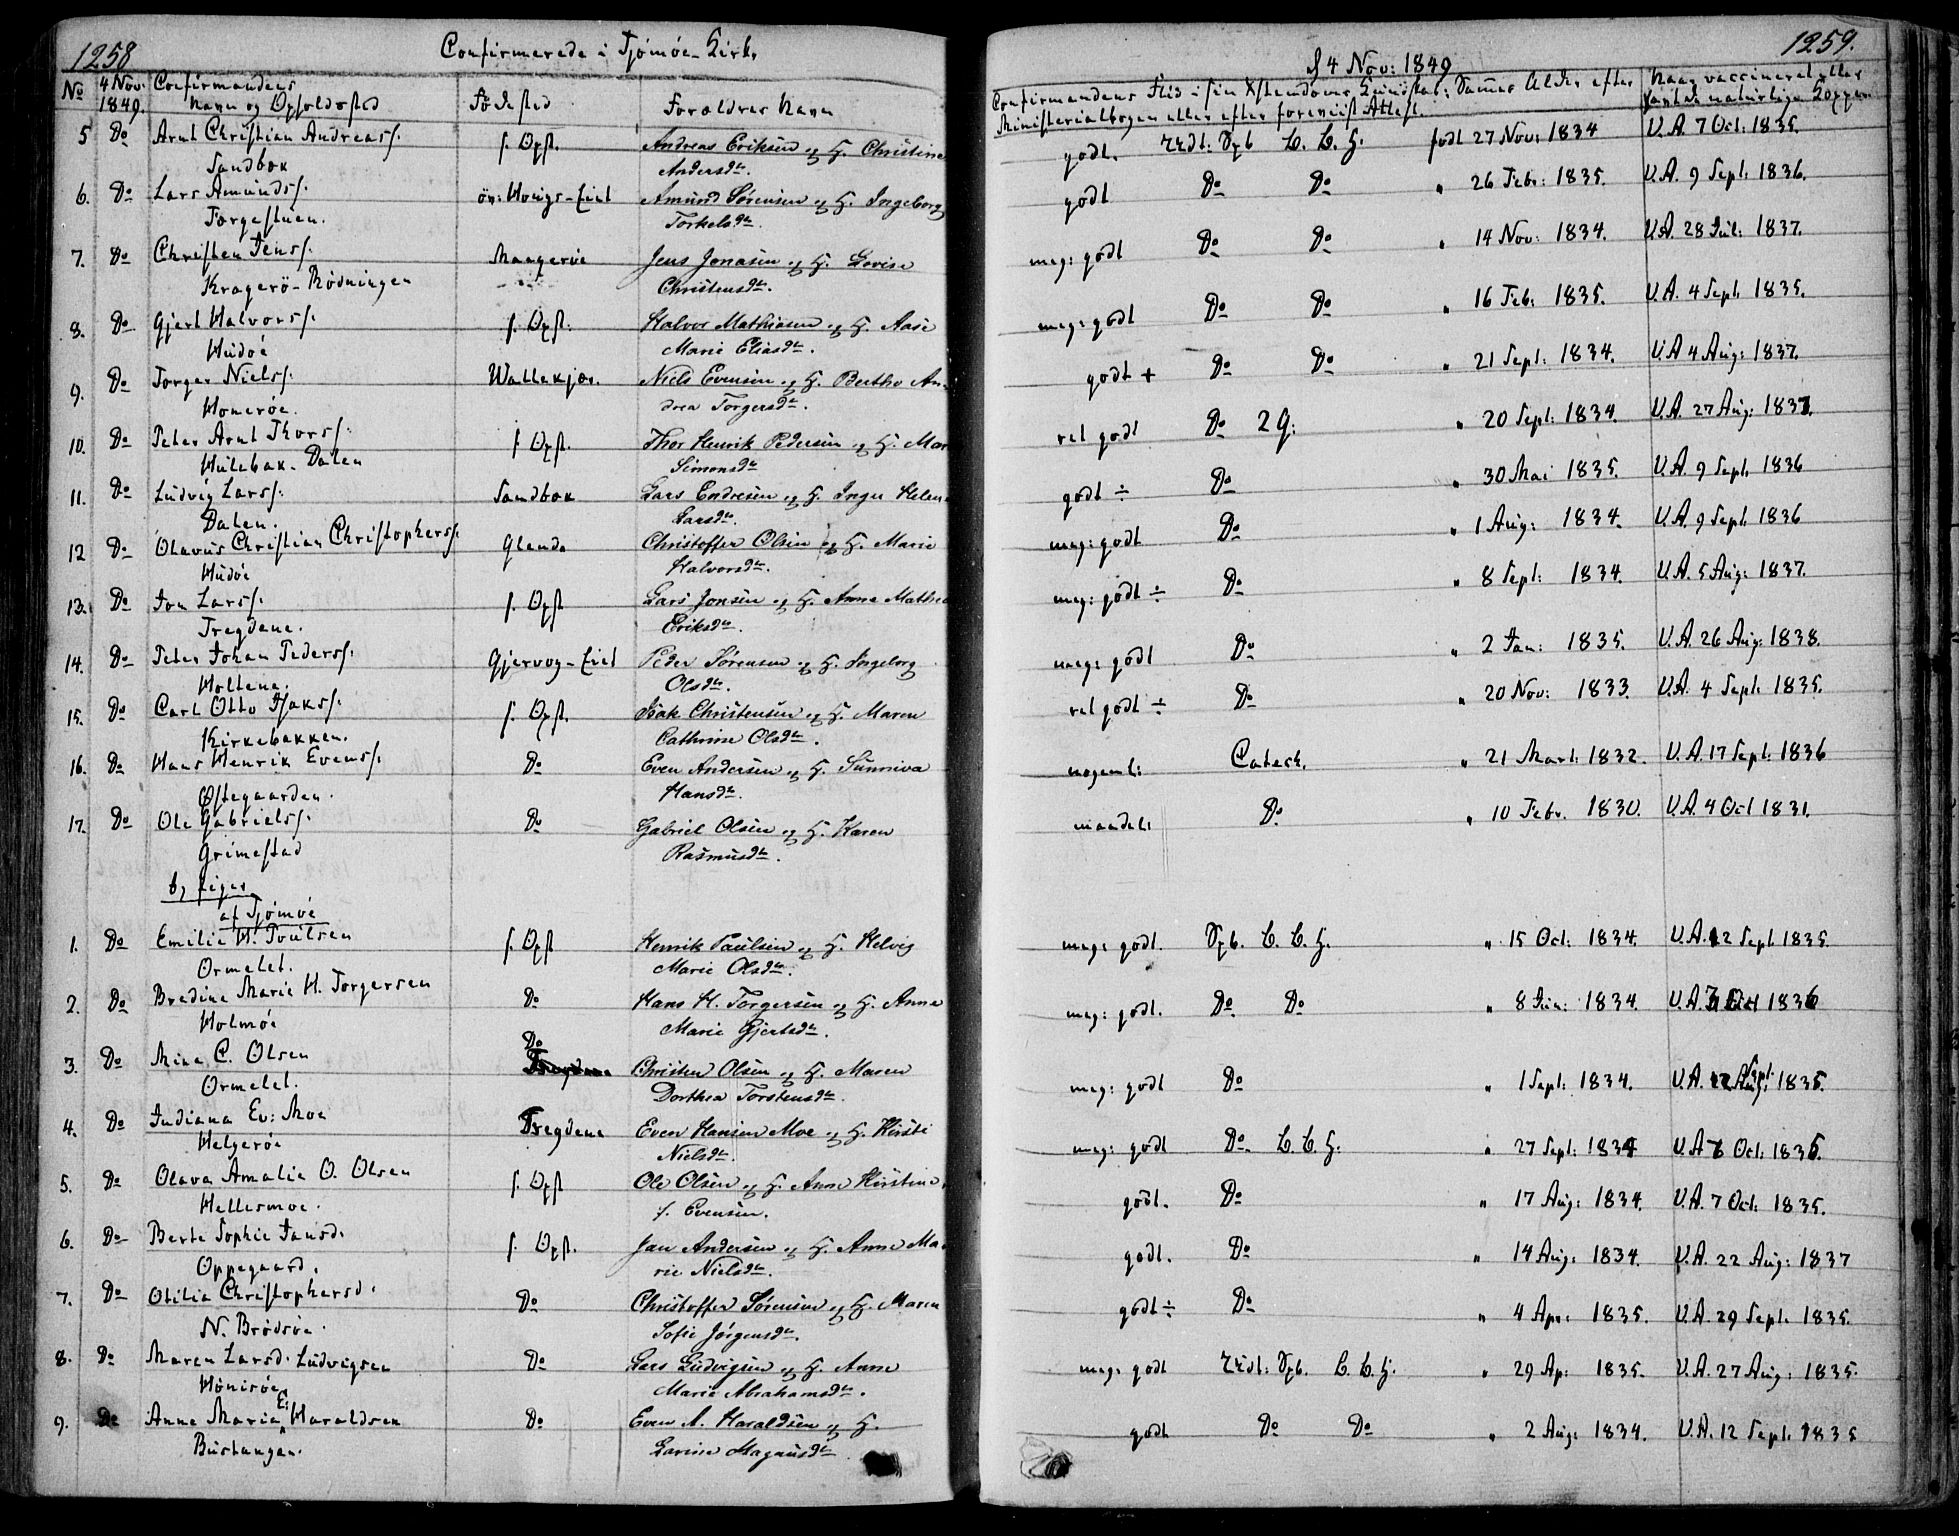 1258
Confirmerede i Tjömöe Kirke
No 4 Nov: 1849. Confirmandens Navn og Opholdssted Födested Forældres Navn
5 Do Arnt Christian Andreass: f. Opst. Andreas Eriksen og H. Christine
Sandbæk Andersdtr.
6. Do Lars Amunds: öv: Honigs-Eiet Amund Sørensen og H. Ingeborg
Torkelsdtr.
7. Do Christen Jenss: Maagerøe Jens Jonasen og H. Lovise
Kragerö-Rödningen Christensdtr.
8. Do Gjert Halvorss: f. Opst. Halvor Mathiasen og H. Aase
Hudöe Marie Eliasdtr.
9. Do Torger Nielss: Wallekjær. Niels Evensen og H. Berthe An-
Honeröe. drea Torgersdtr.
10. Do Peter Arnt Thorss: f. Opst. Thor Henrik Pedersen og H. Mar
Hulebak-Dalen Simonsdtr
11. Do Ludvig Larss: Sandbæk Lars Endresen og H. Inger Helen
Dalen. Larsdtr.
12 Do Olavus Christian Christophers: Glende Christoffer Olsen og H. Marie
Hudöe Halvorsdtr.
13. Do Jon Larss: f. Opst Lars Jonsen og H. Anne Mathea
Tregdene. Eriksdtr.
14. Do Peter Johan Peders: Gjervog-Eiet Peder Sørensen og H. Ingeborg
Holtene. Olsdtr.
15. Do Carl Otto Isaks: f. Opst. Isak Christensen og H. Maren
Kirkebakken. Cathrine Olsdtr.
16. Do Hans Henrik Evens: Do Even Andersen og H. Sunniva
Østegaarden. Hansdtr.
17. Do Ole Gabriels: Do Gabriel Olsen og H. Karen
Grimestad Rasmusdtr.
b, Piger
af Tjömöe
1. Do Emilie H. Poulsen f. Opst Henrik Paulsen og H. Helvig
Ormelet. Marie Olsdtr.
2. Do Bredine Marie H. Torgersen Do Hans H. Torgersen og H. Anne
Holmöe Marie Gjertsdtr.
3. Do Mina C. Olsen Do Christen Olsen og H. Maren
Ormelet. Dorthea Torstensdtr.
4. Do Indiana Ev: Moe Tregdene Even Hansen Moe og H. Kirsti
Helgeröe Nielsdtr.
5. Do Olava Amalia O. Olsen f. Opst Ole Olsen og H. Anne Kirstine
Hellesmoe. f. Evensen.
6. Do Berte Sophie Jansd. f. Opst. Jan Andersen og H. Anne Ma-
Oppegaard. rie Nielsdtr.
7. Do Otilia Christophersd. Do Christoffer Sørensen og H. Maren
N. Brödsöe. Sofie Jörgensdtr.
8. Do Maren Larsd. Ludvigsen Do Lars Ludvigsen og H. Anne
Hönisöe Marie Abrahamsdtr.
9. Do Anne Maria E: Haraldsen Do Even A. Haraldsen og H.
Bustangen. Lavine Magnusdtr
1259.
d 4 Nov: 1849
Confirmandens Flid i sin Xstendoms Kundskab: Sammes Alder efter Naar vaccineret eller
Ministerialbogen eller efter foreviist Attest. havt de naturlige Kopper.
godt. Spb C. C. H. födt 27 Nov: 1834 V. A. 7 Oct: 1835.
godt Do Do " 26 Febr: 1835. V. A. 9 Sept. 1836.
meg: godt Do Do " 14 Nov: 1834. V. A. 28 Jul: 1837.
meg: godt Do Do " 16 Feb: 1835. V. A. 4 Sept. 1835.
godt + Do Do " 21 Sept: 1834. V. A 4 Aug: 1837.
ret godt Do 2 G: " 20 Sept: 1834. V. A. 27 Aug: 1837.
godt ÷ Do " 30 Mai 1835. V. A. 9 Sept. 1836
meg: godt Do " 1 Aug: 1834. V. A. 9 Sept. 1836
meg: godt ÷ Do " 8 Sept: 1834. V. A. 5 Aug: 1837.
meg: godt Do " 2 Jan: 1835. V. A. 26 Aug: 1838.
ret godt ÷ Do " 20 Nov: 1833. V. A. 4 Sept. 1835.
nogenl: Catech. " 21 Mart: 1832. V. A. 17 Sept. 1836
maadel: Do " 10 Febr. 1830. V. A. 4 Oct 1831.
meg: godt. Spb. C. C. H. " 15 Oct: 1834. V. A. 12 Sept. 1835.
meg: godt. Do Do " 8 Jun: 1834. V. A. 7 Oct 1836
meg: godt Do " 1 Sept: 1834. V. A. 12 Sept: 1835.
meg: godt Do. C. C. H. " 27 Sept: 1834 V. A 7 Oct: 1835.
godt. Do " 17 Aug: 1834. V. A. 7 Oct: 1835.
godt. Do " 14 Aug: 1834. V. A. 22 Aug: 1837
godt ÷ Do " 4 Apr: 1835. V. A. 29 Sept. 1835.
meg: godt Spb. C. C. H. " 29 Ap: 1835. V. A. 27 Aug: 1835.
godt Do Do " 2 Aug: 1834. V. A. 12 Sept. 1835